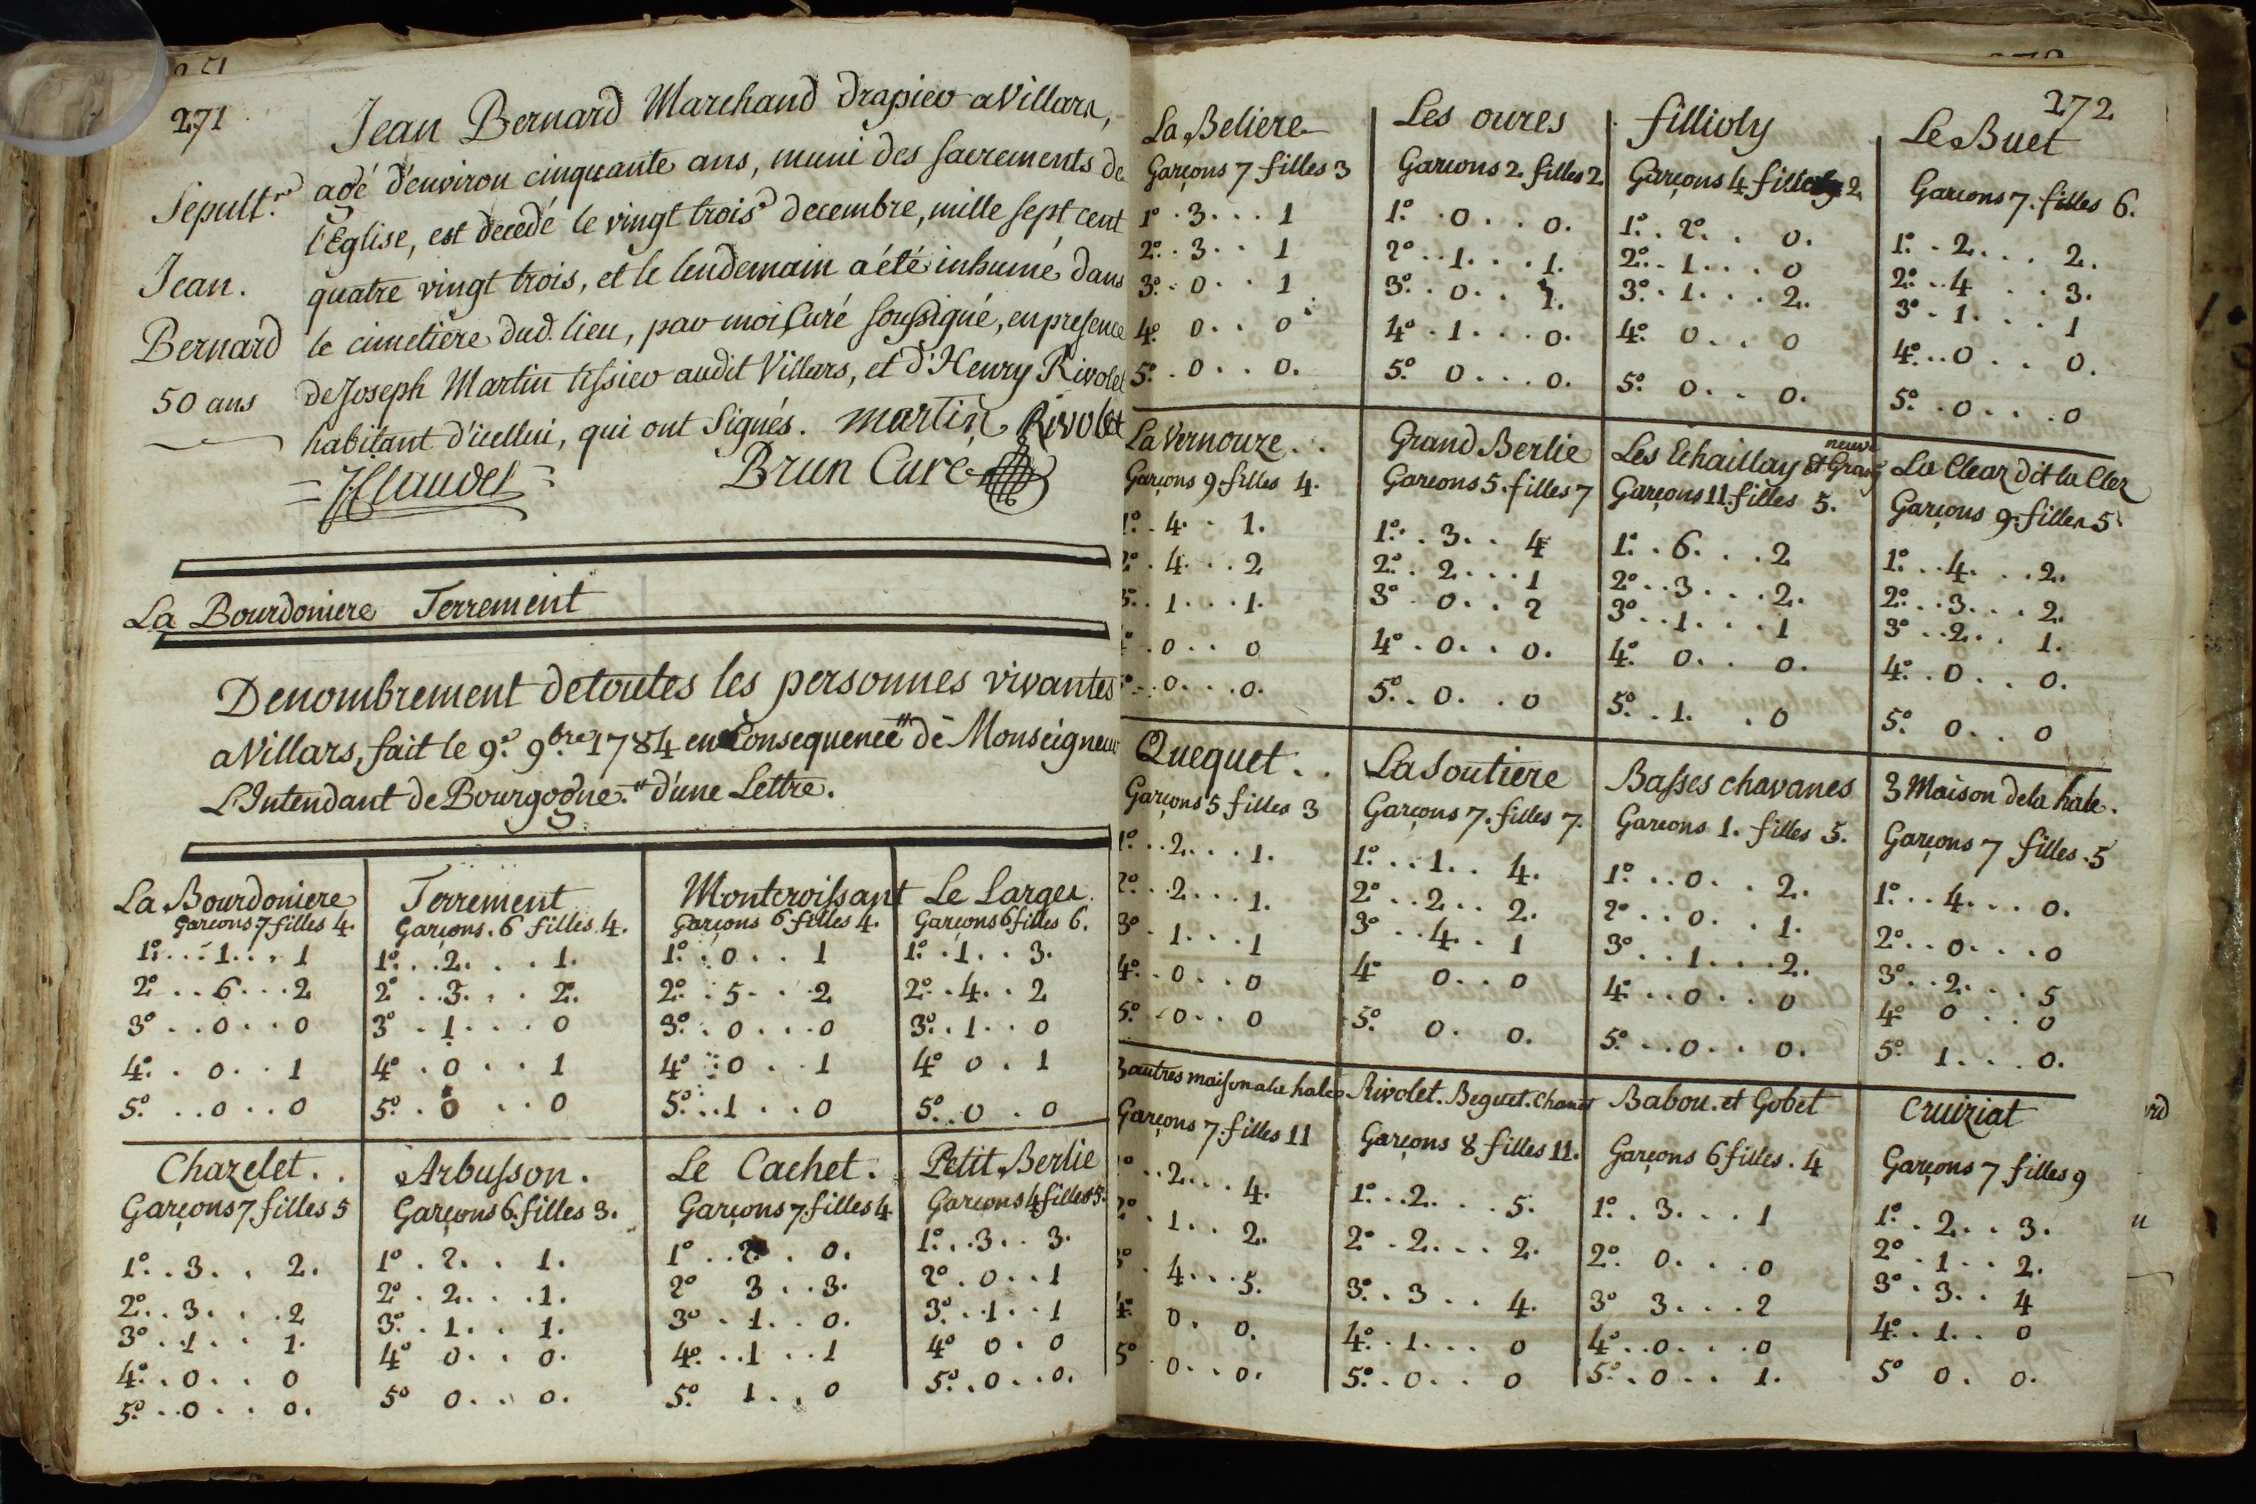 271
Sepult.re
Jean.
Bernard
50 ans
Jean Bernard Marchand drapier a Villars,
agé d'environ cinquante ans, muni des sacrements de
l'Eglise, est decedé le vingt trois decembre, mille sept cent
quatre vingt trois, et le lendemain a été inhumé dans
le cimetiere dud. lieu, par moi Curé soussigné, en presence
de Joseph Martin tissier audit Villars, et d'Henry Rivolet
habitant d'icellui, qui ont signés. martin Rivolet
Brun Curé
La Bourdoniere Terrement
Denombrement de toutes les personnes vivantes
a Villars, fait le 9.e 9.bre 1784 en consequence " de Monseigneur
L'Intendant de Bourgogne. " d'une Lettre.
La Bourdoniere
Garçons 7 filles 4.
1.º . . 1 . . 1
2º . . 6 . . . 2
3º . . 0 . . 0
4.º . 0 . . 1
5.º . . 0 . . 0
Terrement
Garçons. 6 filles. 4.
1.º . . 2 . . . 1.
2º . . 3 . . . 2.
3º . 1 . . . 0
4º . 0 . . 1
5.º . 0 . . 0
Montcroissant
Garçons 6 filles 4.
1.º . 0 . . 1
2.º . 5 . . . 2
3.º . 0 . . . 0
4º . 0 . . 1
5.º . . 1 . . 0
Le Larges
Garçons 6 filles 6.
1.º . 1 . . 3.
2.º . 4 . . 2
3.º . 1 . . 0
4º 0 . 1
5.º . 0 . 0
Chazelet . .
Garçons 7 filles 5
1.º . 3 . . 2.
2.º . . 3 . . . 2
3º . . 1 . . 1.
4.º . 0 . . 0
5.º . . 0 . . 0.
Arbusson.
Garçons 6. filles 3.
1º . 2 . . 1.
2º . 2 . . . 1.
3.º . 1 . . 1.
4º 0 . . 0.
5º 0 . . 0.
Le Cachet.
Garçons 7. filles 4
1º . . 2 . . 0.
2º 3 . . 3.
3º . 1 . . 0.
4.º . . 1 . . 1
5.º 1 . . 0
Petit Berlie
Garçons 4 filles 5.
1.º . . 3 . . 3.
2º . 0 . . 1
3.º . . 1 . . 1
4º 0 . 0
5.º . 0 . . 0.
272
La Beliere
Garçons 7 filles 3
1º . 3 . . . 1
2.º . 3 . . 1
3.º . 0 . . 1
4.º 0 . . 0
5.º . 0 . . 0.
Les oures
Garcons 2. filles 2.
1.º . 0 . . 0.
2º . . 1 . . . 1.
3.º . 0 . . 1.
4.º . 1 . . . 0.
5.º 0 . . . 0.
fillioly
Garçons 4 filles 2
1.º . 2. . . 0.
2.º . 1 . . . 0
3.º . 1 . . . 2.
4.º 0 . . 0
5.º 0 . . 0.
Le Buet
Garcons 7. filles 6.
1.º . 2 . . . 2.
2.º . . 4 . . 3.
3º . 1 . . . 1
4.º . . 0 . . . 0.
5.º . 0 . . . 0
La Vernouze . .
Garçons 9. filles 4.
1.º . 4 . . 1.
2º . 4 . . . 2
3.º . 1 . . . 1.
4º . 0 . . 0
5º . . 0 . . . 0.
Grand Berlie
Garcons 5. filles 7
1.º . 3 . . 4
2.º . 2 . . . 1
3º 0 . . 2
4º . 0 . . 0.
5.º . 0 . . 0
Les Echaillay neuve et Grang
Garçons 11. filles 5.
1.º . 6 . . . 2
2º . . 3 . . . 2.
3º . . 1 . . . 1
4.º 0 . . 0.
5.º . 1. . 0
La Clear dit la Clez
Garçons 9. filles 5
1.º . . 4 . . . 2.
2.º . . 3 . . . 2.
3º . . 2 . . 1.
4.º . 0 . . 0.
5.º 0 . . 0
Quequet . .
Garçons 5 filles 3
1.º . . 2 . . . 1.
2.º . . 2 . . . 1.
3º . 1 . . . 1
4.º . 0 . . . 0
5.º . 0 . . 0
La Soutiere
Garçons 7. filles 7.
1.º . . 1 . . 4.
2º . . 2 . . 2.
3º . . 4 . . 1
4º 0 . . 0
5.º 0 . 0.
Basses chavanes
Garcons 1. filles 5.
1.º . . 0 . . 2.
2º . . 0 . . 1.
3º . . 1 . . . 2.
4.º . . 0 . . 0
5.º . . 0 . . 0.
3 Maison de la hale.
Garçons 7 filles. 5
1.º . . 4 . . . 0.
2º . . 0 . . . 0
3.º . . 2 . . . 5
4º 0 . . 0
5.º 1 . . . 0.
3 autres maison a la hale
Garçons 7. filles 11
1º . . 2 . . . 4.
2º . 1 . . 2.
3º . 4 . . . 5.
4.º 0 . 0.
5º . 0 . . 0.
Rivolet. Beguet. Chanet
Garçons 8 filles 11.
1.º . . 2 . . . 5.
2º . 2 . . . 2.
3.º . 3 . . 4.
4.º . 1 . . . 0
5.º . 0 . . 0
Babou. et Gobet
Garçons 6 filles. 4
1.º . 3 . . . 1
2.º 0 . . . 0
3º 3 . . . 2
4.º . 0 . . . 0
5.º . 0 . . 1.
Cruiziat
Garçons 7 filles 9
1.º . 2 . . 3.
2º . 1 . . 2.
3º . 3 . . 4
4.º . 1 . . 0
5º 0 . 0.